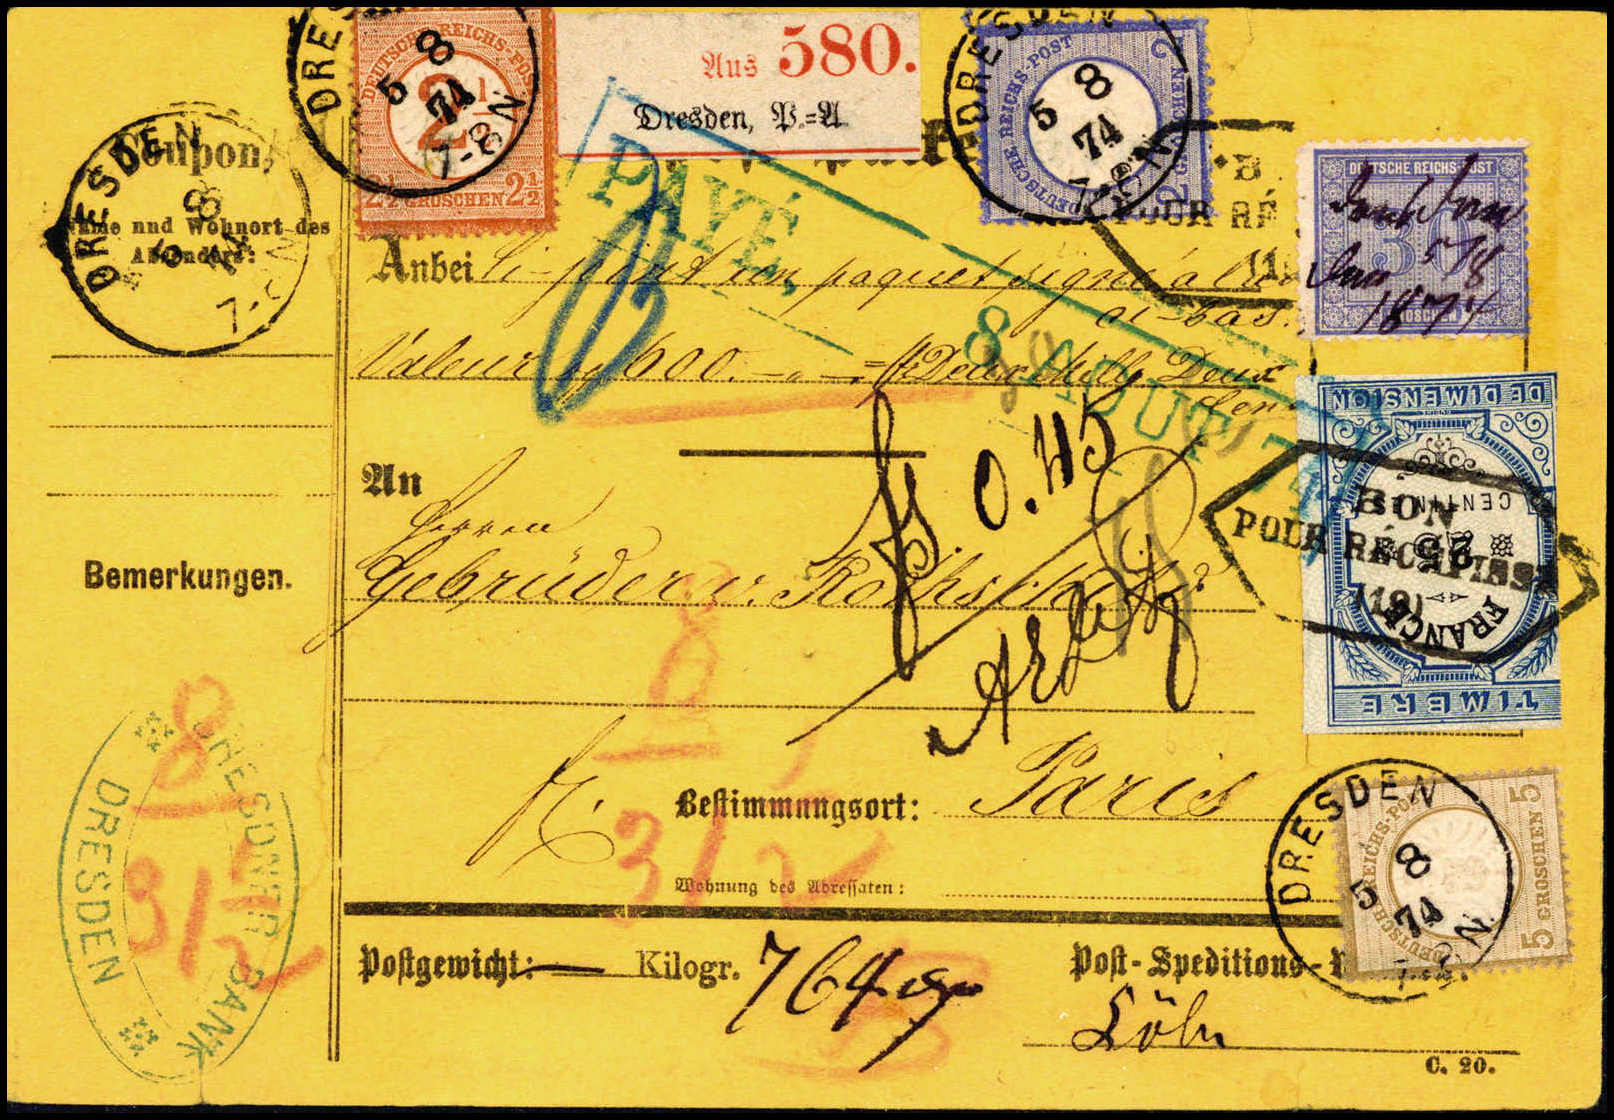 DRESDEN
5 8
74
7-8N
DEUTSCHE REICHS-POST
2½
2½ GROSCHEN 2½
Aus 580.
Dresden, P.=A
DRESDEN
5 8
74
7-8N
DEUTSCHE REICHS-POST
2 GROSCHEN 2
Coupon,
Name und Wohnort des
Absenders:
DRESDEN
5 8
74
PAYÉ,
8 AOUT 74
POUR RÉ
DEUTSCHE REICHS-POST
30
GROSCHEN
5/8
1874
Anbei Ci-joint un paquet signé à
ci-bas.
Valeur 600.
An
Herren
Gebrüder v. Rothschild
fs 0.45
DE DIMENSION
CENTIMES
25
FRANCE
TIMBRE
BON
POUR RÉCÉPISSÉ
(19)
Bemerkungen.
8
3/2
8
3/2
DRESDNER BANK
DRESDEN
Bestimmungsort: Paris
Wohnung des Adressaten:
DRESDEN
5 8
74
DEUTSCHE REICHS-POST
5 GROSCHEN 5
Postgewicht: — Kilogr. 764 gr
Post-Speditions-
Cöln
C. 20.